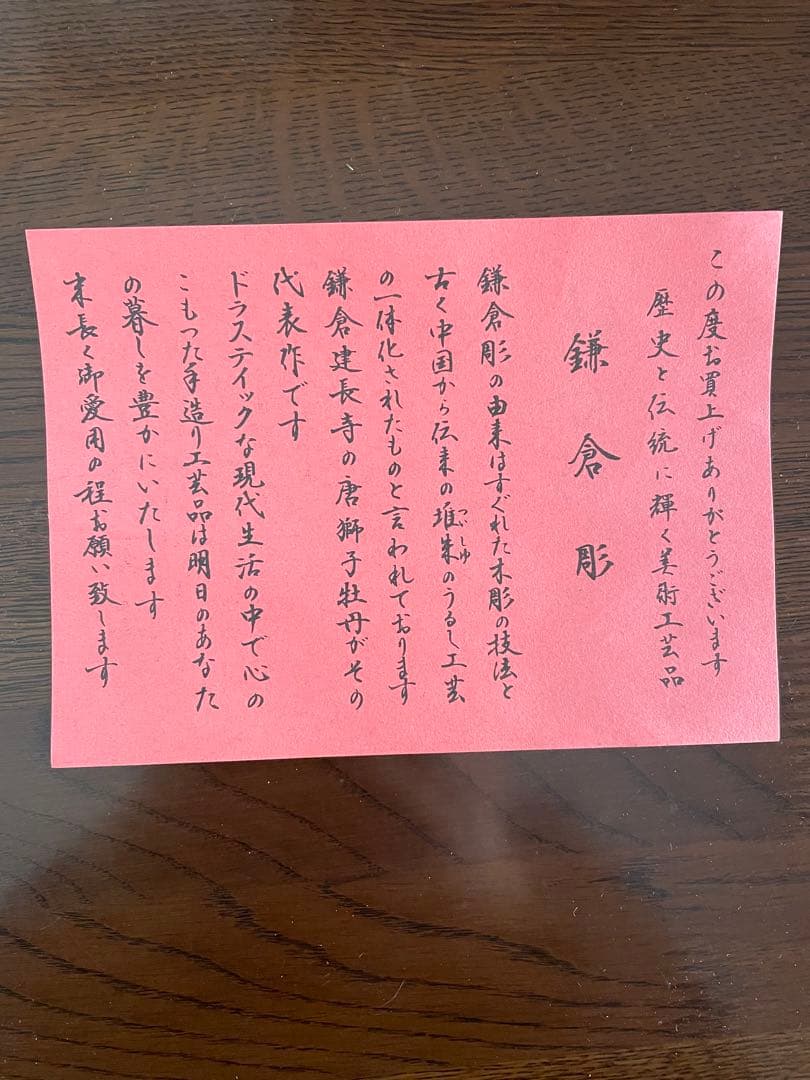 この度お買上げありがとうございます
歴史と伝統に輝く美術工芸品
鎌倉彫
鎌倉彫の由来はすぐれた木彫の技法と
古く中国から伝来の堆朱のうるし工芸
ついしゅ
の一体化されたものと言われております
鎌倉建長寺の唐獅子牡丹がその
代表作です
ドラスティックな現代生活の中で心の
こもった手造り工芸品は明日のあなた
の暮しを豊かにいたします
末長く御愛用の程お願い致します